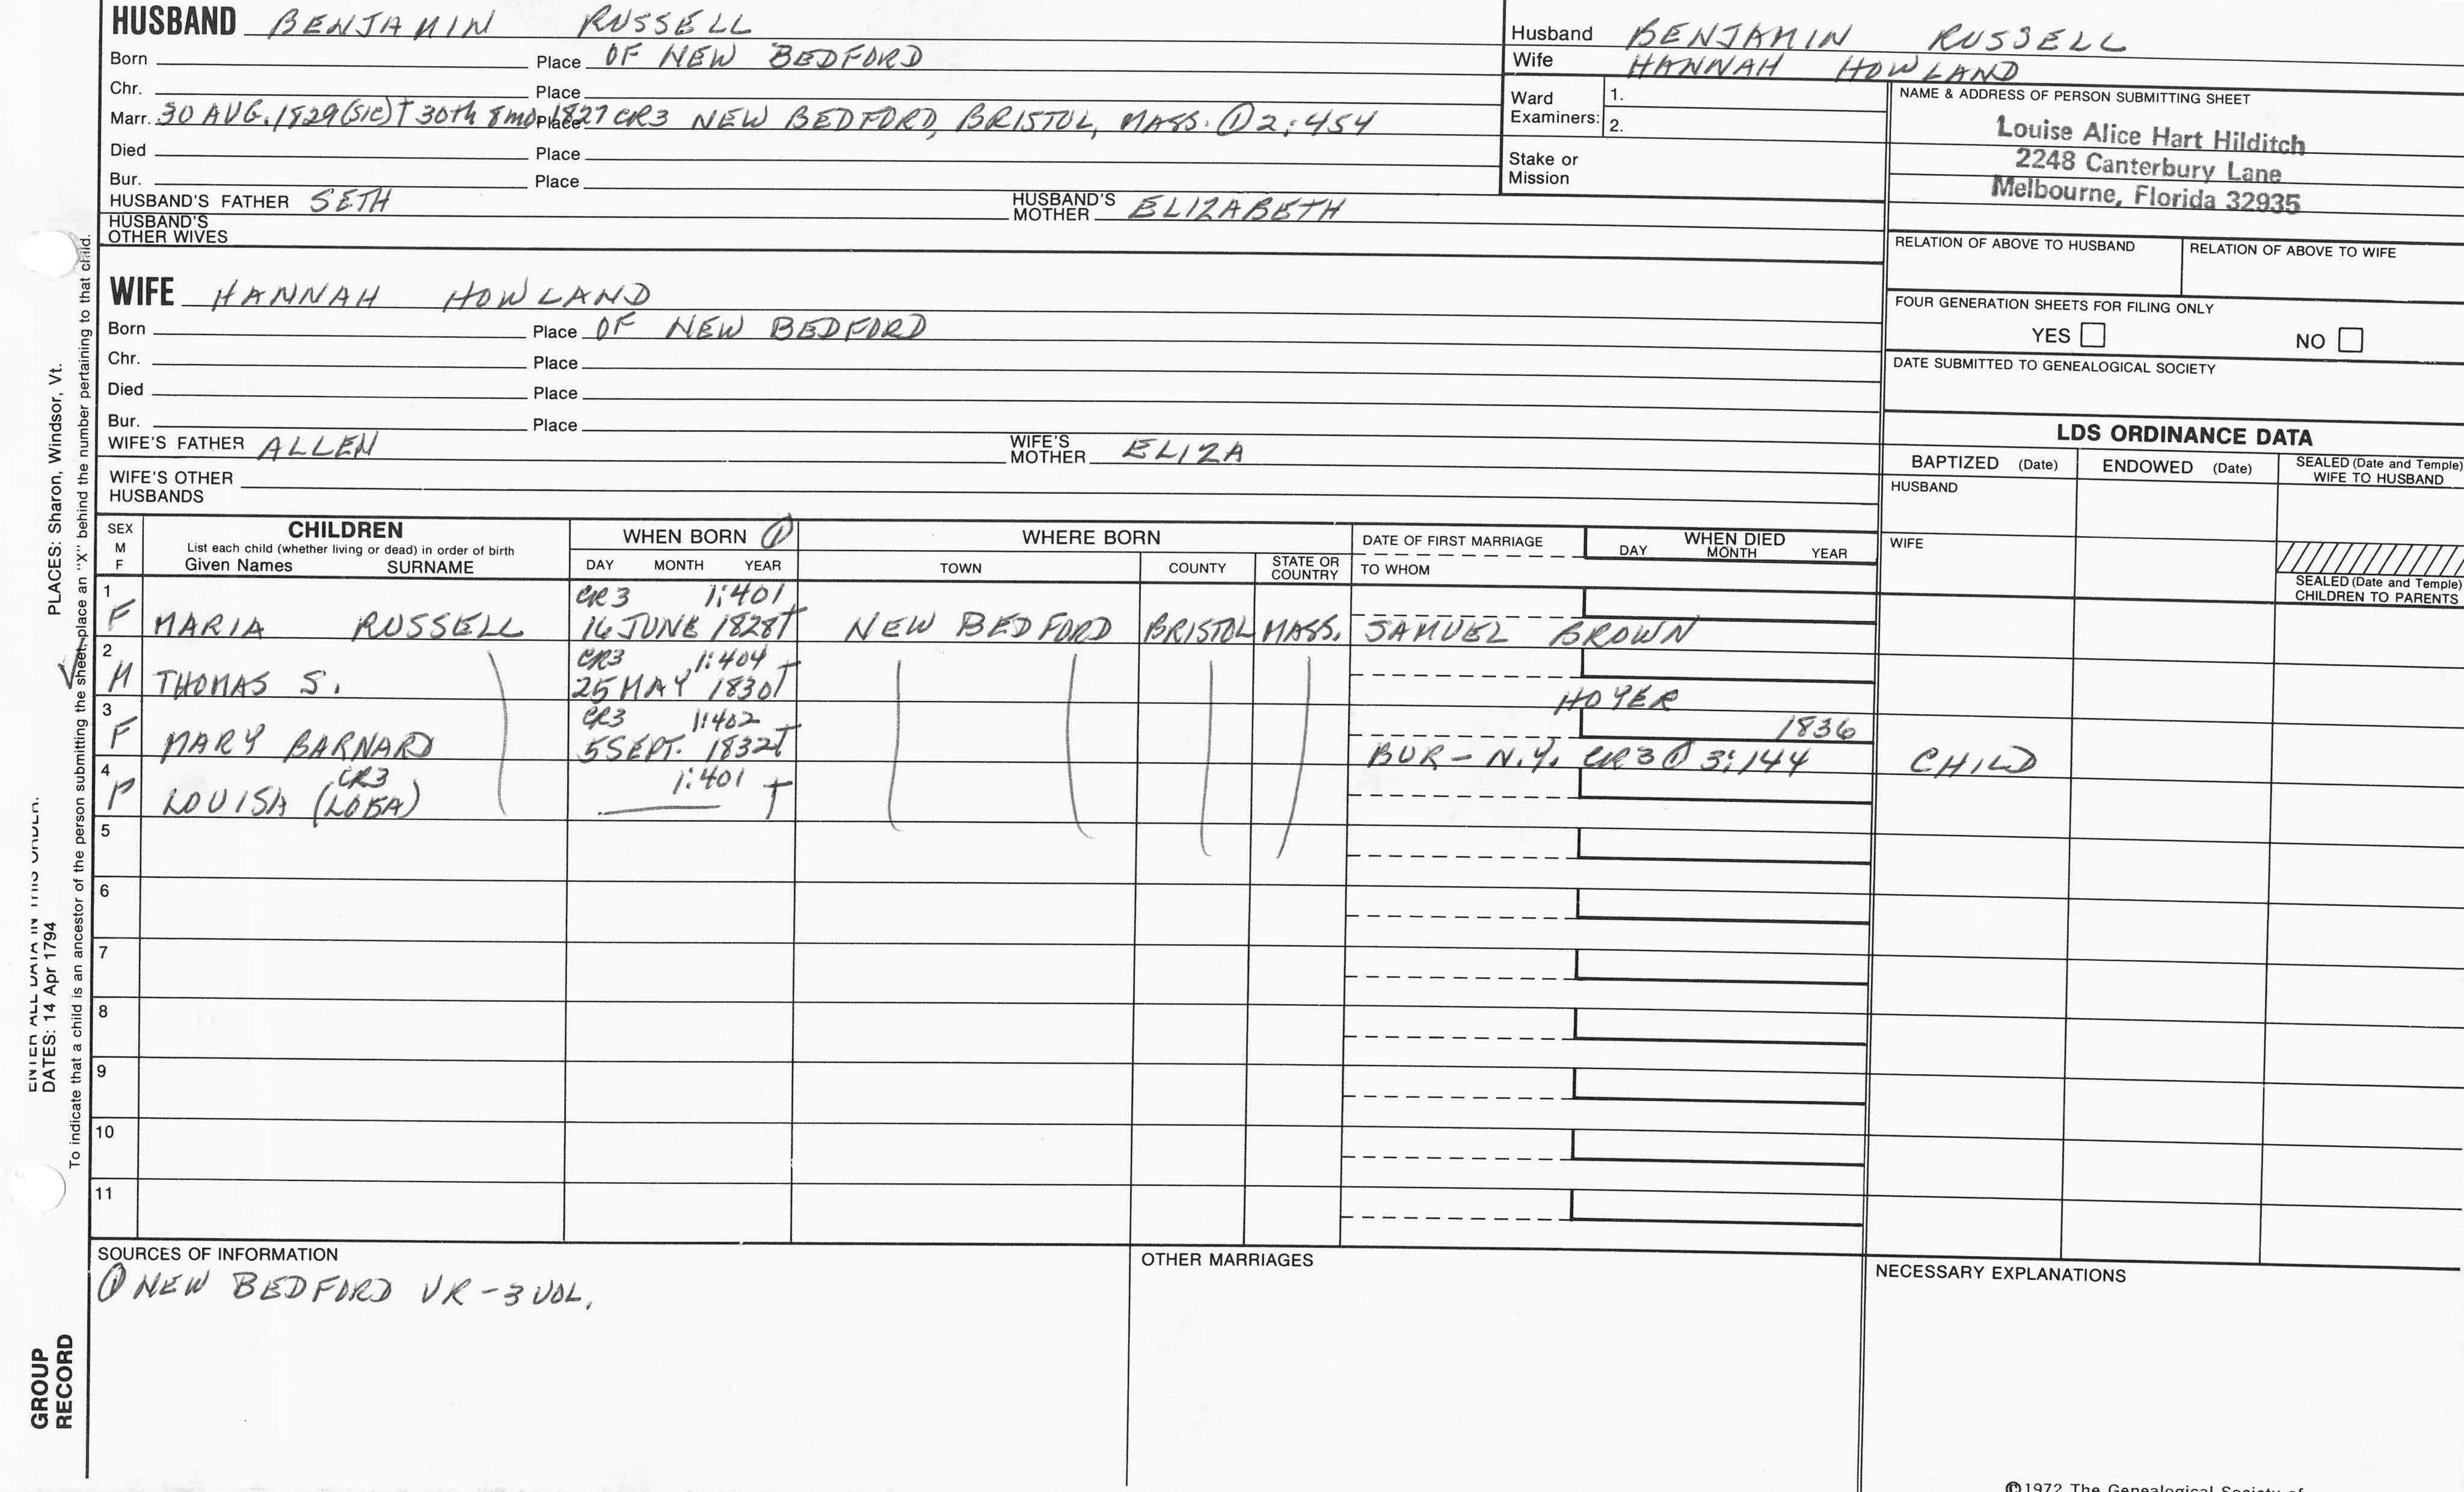 HUSBAND BENJAMIN RUSSELL
Born Place OF NEW BEDFORD
Chr. Place
Marr. 30 AUG. 1829 (SIC) † 30th 8mo. 1827 CR3 Place NEW BEDFORD, BRISTOL, MASS. ① 2:454
Died Place
Bur. Place
HUSBAND'S FATHER SETH HUSBAND'S MOTHER ELIZABETH
HUSBAND'S OTHER WIVES
WIFE HANNAH HOWLAND
Born Place OF NEW BEDFORD
Chr. Place
Died Place
Bur. Place
WIFE'S FATHER ALLEN WIFE'S MOTHER ELIZA
WIFE'S OTHER
HUSBANDS
Husband BENJAMIN RUSSELL
Wife HANNAH HOWLAND
Ward Examiners: 1.
2.
Stake or
Mission
NAME & ADDRESS OF PERSON SUBMITTING SHEET
Louise Alice Hart Hilditch
2248 Canterbury Lane
Melbourne, Florida 32935
RELATION OF ABOVE TO HUSBAND RELATION OF ABOVE TO WIFE
FOUR GENERATION SHEETS FOR FILING ONLY
YES NO
DATE SUBMITTED TO GENEALOGICAL SOCIETY
LDS ORDINANCE DATA
BAPTIZED (Date) ENDOWED (Date) SEALED (Date and Temple) WIFE TO HUSBAND
HUSBAND
WIFE
SEALED (Date and Temple)
CHILDREN TO PARENTS
SEX M F
CHILDREN
List each child (whether living or dead) in order of birth
Given Names SURNAME
WHEN BORN ①
DAY MONTH YEAR
WHERE BORN
TOWN COUNTY STATE OR COUNTRY
DATE OF FIRST MARRIAGE
TO WHOM
WHEN DIED
DAY MONTH YEAR
1 CR3 1:401
F MARIA RUSSELL 16 JUNE 1828† NEW BEDFORD BRISTOL MASS. SAMUEL BROWN
2 CR3 1:404
M THOMAS S. 25 MAY 1830†
HOYER
3 CR3 1:402 1836
F MARY BARNARD 5 SEPT. 1832† BUR - N.Y. CR3 ① 3:144 CHILD
4 CR3 1:401 †
F LOUISA
5
6
7
8
9
10
11
SOURCES OF INFORMATION
① NEW BEDFORD VR - 3 VOL.
OTHER MARRIAGES
NECESSARY EXPLANATIONS
PLACES: Sharon, Windsor, Vt.
DATES: 14 Apr 1794
To indicate that a child is an ancestor of the person submitting the sheet, place an "X" behind the number pertaining to that child.
GROUP
RECORD
©1972 The Genealogical Society of